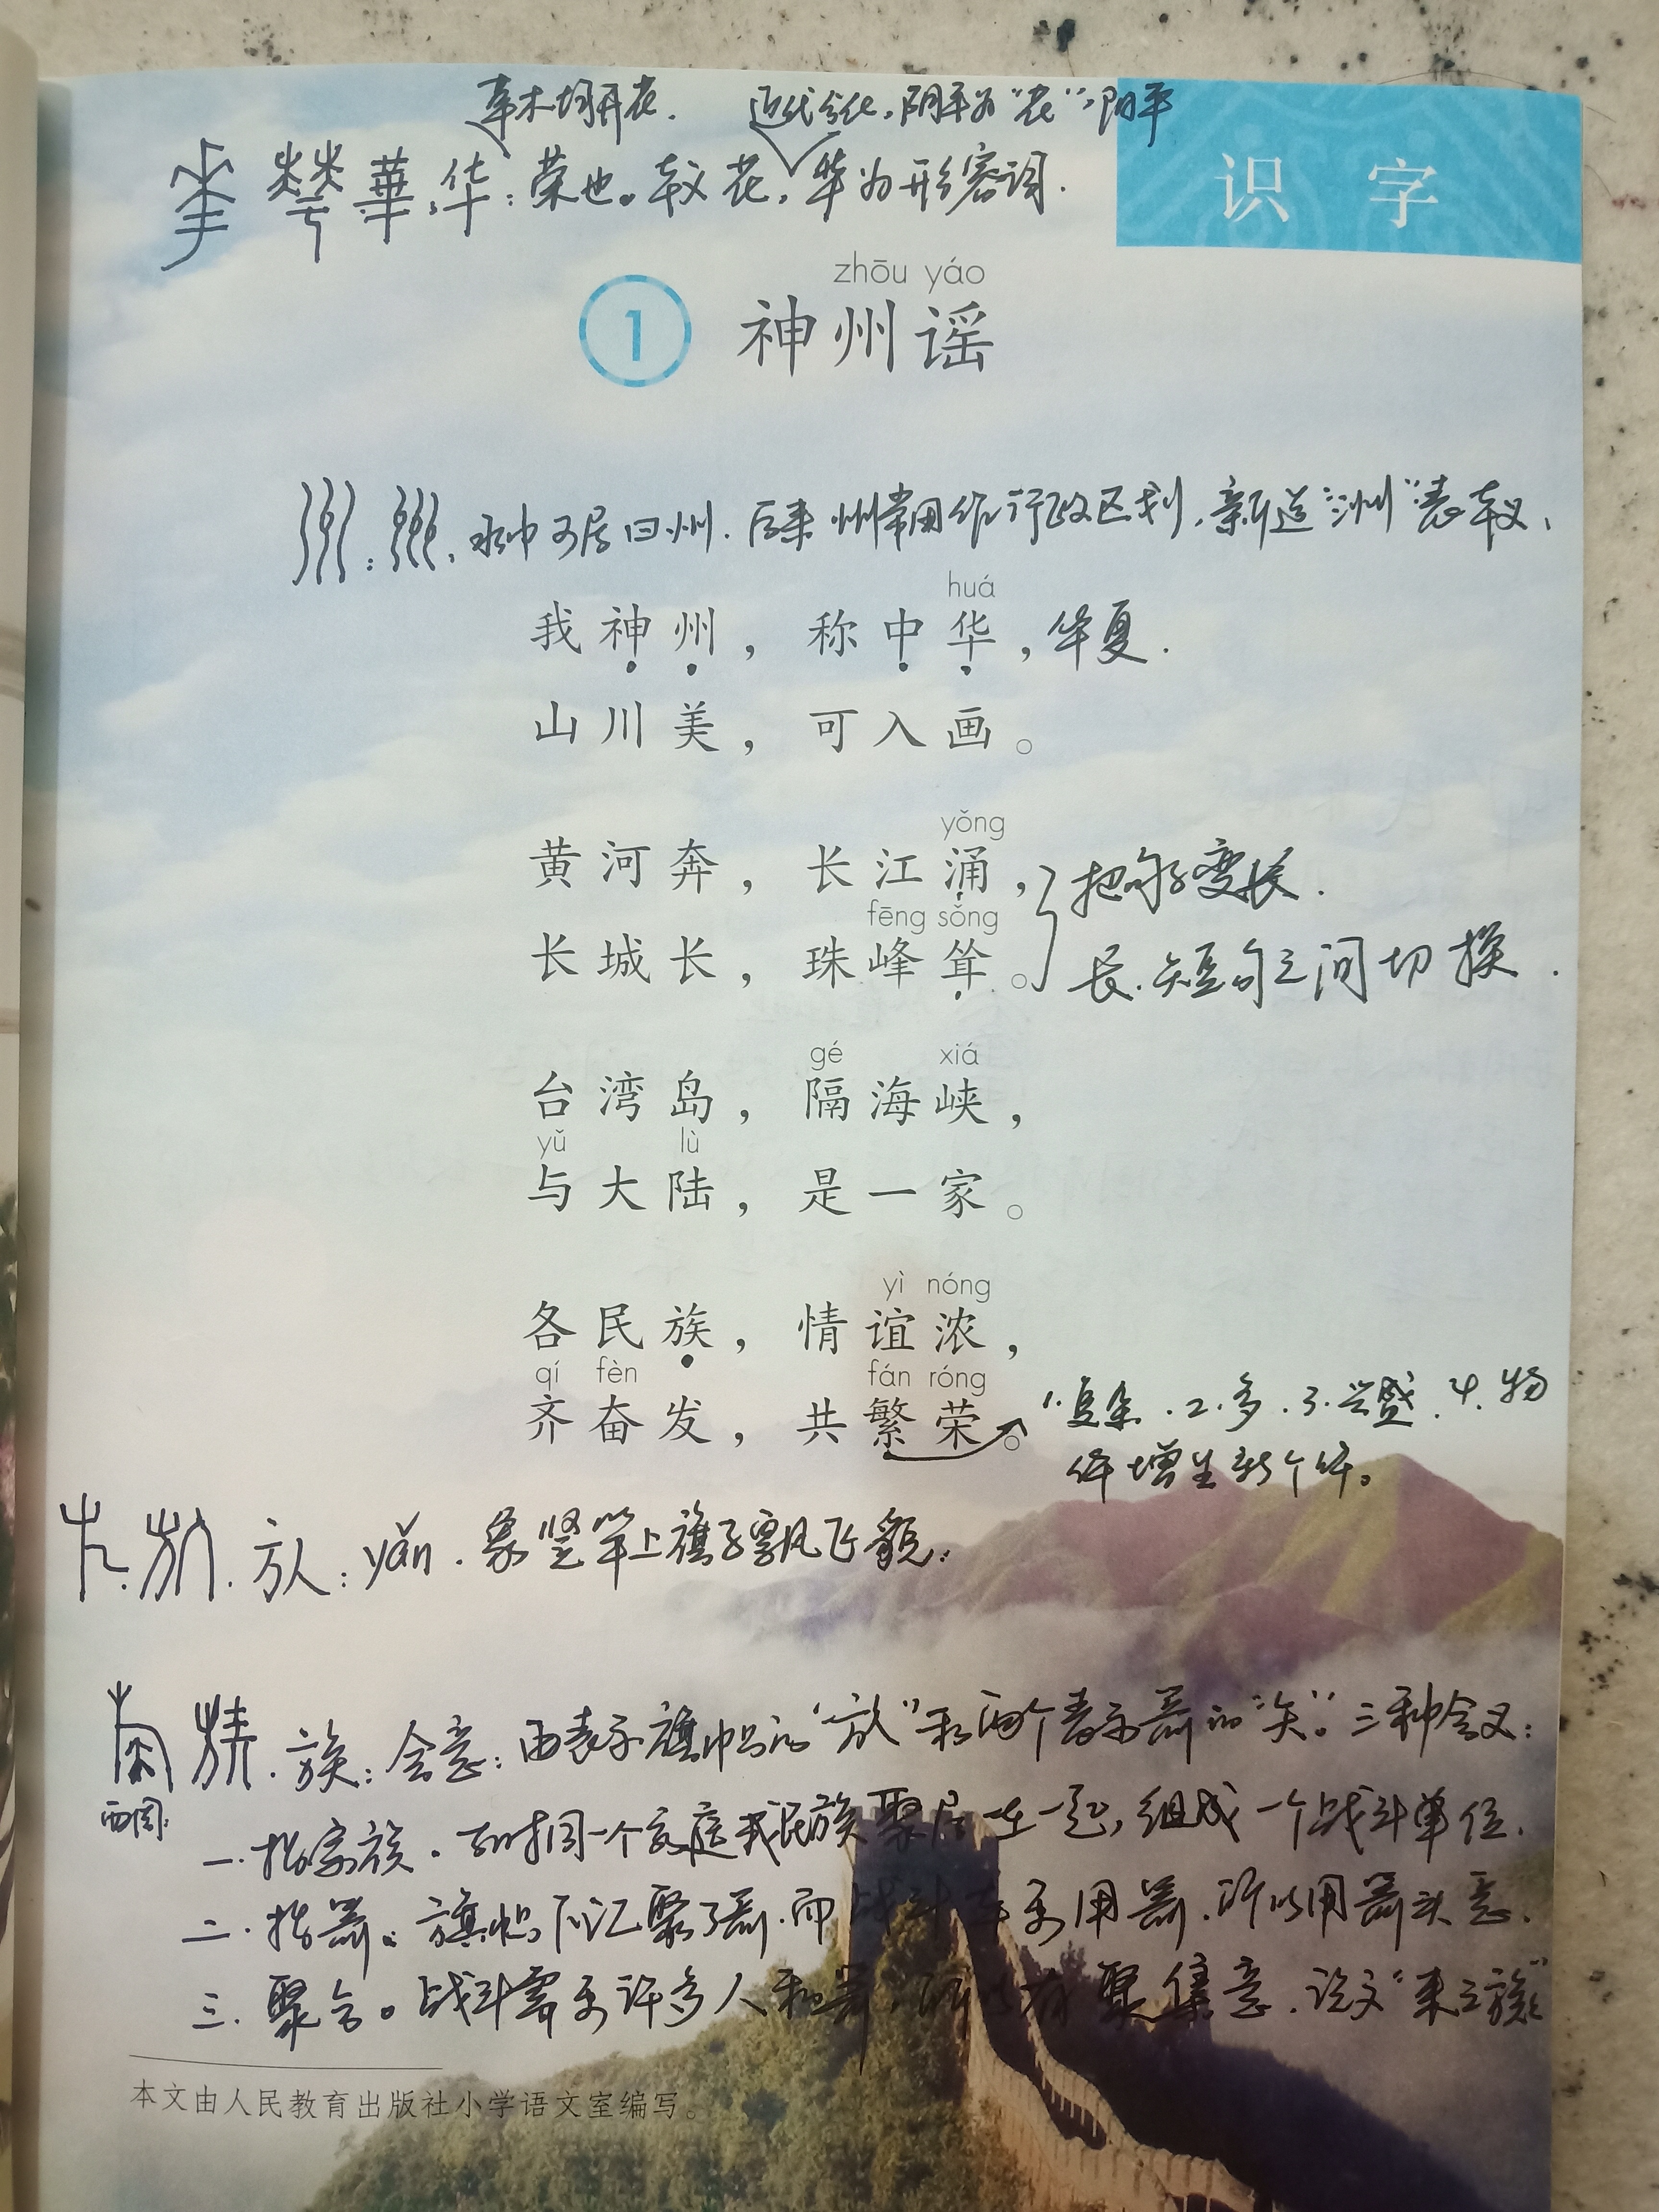 草木均开花.  近代分化,阴平为“花”,阳平
華 华:荣也。本义花,华为形容词.
识 字
zhōu yáo
1 神州谣
州:州,水中可居曰州.后来州常用作行政区划,新造“洲”表本义、
huá
我神州,称中华,华夏.
山川美,可入画。
yǒng
黄河奔,长江涌,把句子变长.
fēng sǒng
长城长,珠峰耸。长.短句之间切换.
gé xiá
台湾岛,隔海峡,
yǔ lù
与大陆,是一家。
yì nóng
各民族,情谊浓,
qí fèn fán róng
齐奋发,共繁荣。1.复杂.2.多.3.兴盛.4.物
体增生新个体。
㫃:yǎn.象竖竿上旗子飘飞貌.
族:会意:由表示旗帜的“㫃”和两个表示箭的“矢”。三种含义:
西周:
一.指家族.古时同一个家庭或民族聚居在一起,组成一个战斗单位.
二.指箭。旗帜下汇聚了箭.而战斗要用箭.所以用箭头意.
三.聚合。战斗需要许多人和箭,所以有聚集意.说文“束之族”
本文由人民教育出版社小学语文室编写。